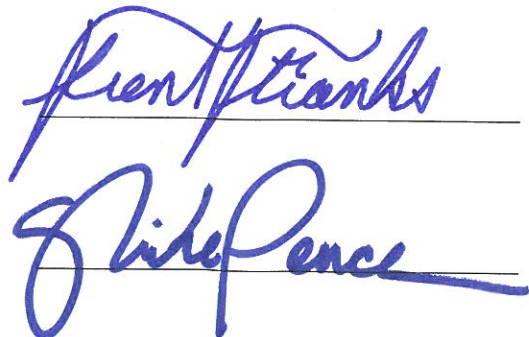 Trent Franks
Mike Pence